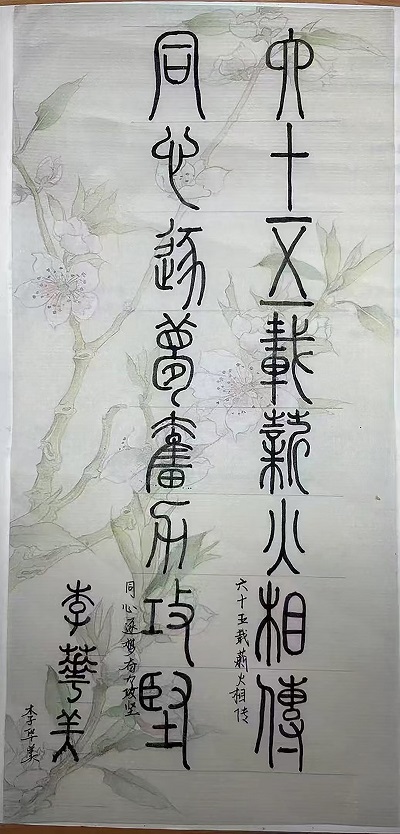 六十五載薪火相傳
六十五载薪火相传
同心逐夢奮力攻堅
同心逐梦奋力攻坚
李華美
李华美